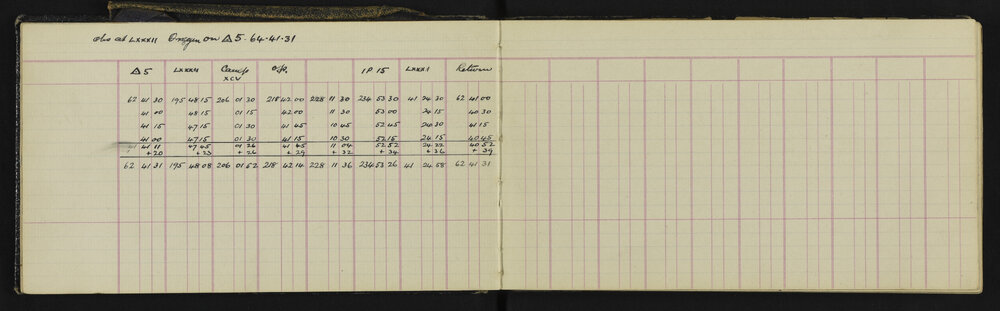 Obs at LXXXII Oregon on Δ5. 64.41.31
Δ5 LXXXII Camp XCV O.P. IP 15 LXXXI Return
62 41 30 195 48 15 206 01 30 218 42 00 228 11 30 234 53 30 41 24 30 62 41 00
41 00 48 15 01 15 42 00 11 30 53 00 24 15 40 30
41 15 47 15 01 30 41 45 10 45 52 45 24 30 41 15
41 00 47 15 01 30 41 15 10 30 52 15 24 15 40 45
41 11 47 45 01 26 41 45 11 04 52 52 24 22 40 52
+20 +23 +26 +29 +32 +34 +36 +39
62 41 31 195 48 08 206 01 52 218 42 14 228 11 36 234 53 26 41 24 58 62 41 31